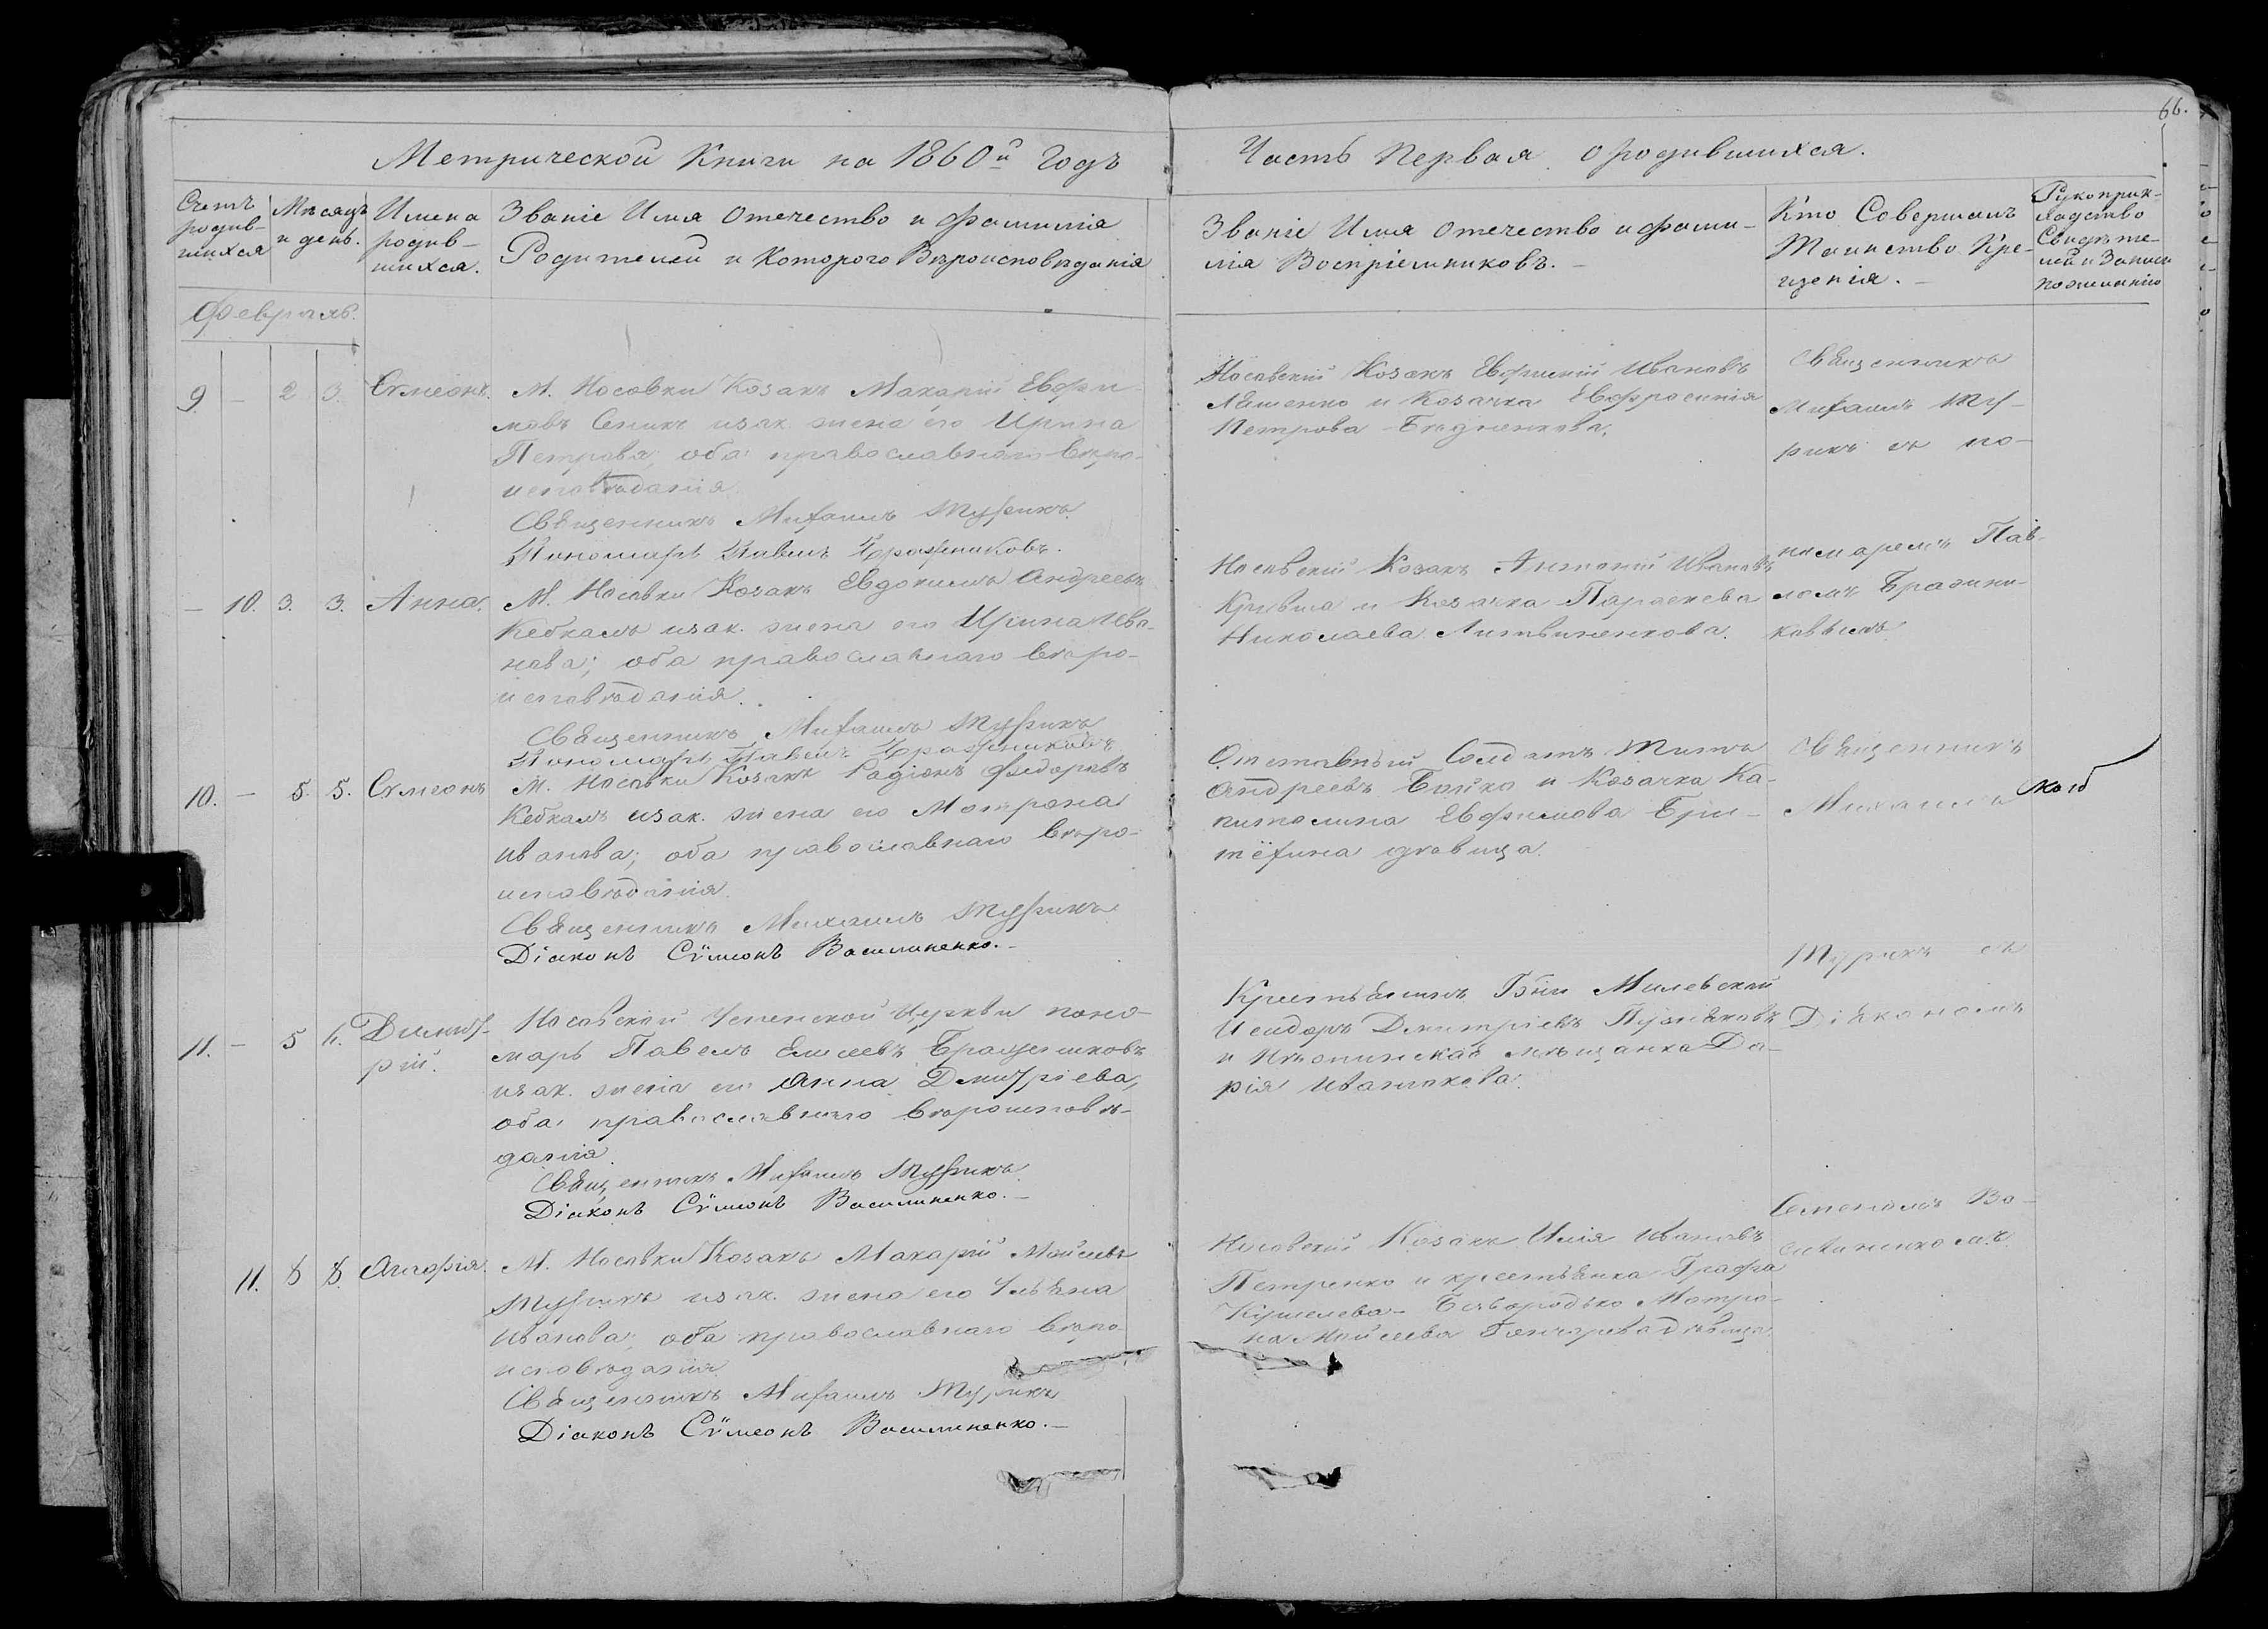 66.
Метрической Книги на 1860й Годъ
Часть Первая о родившихся.
Счетъ родив-
шихся
Мѣсяцъ
и день.
Имена
родив-
шихся.
Званіе Имя Отечество и фамилія
Родителей и Которого Вѣроисповѣданія
Званіе Имя Отечество и фами-
лія Воспріемниковъ.
Кто Совершалъ
Таинство Кре-
щенія.
Рукоприк-
ладство
Свидѣте-
лей и Записи
по желанію
Февраль.
9. – 2 3. Сѵмеонъ.
М. Носовки Козакъ Макарій Евфи-
мовъ Сеникъ изак. жена его Ирина
Петрова; оба православнаго вѣро-
исповѣданія.
Священникъ Михаилъ Турикъ
Пономарь Павелъ Бражниковъ.
Носовский Козакъ Евфимій Ивановъ
Ляшенко и Козачка Евфросинія
Петрова
Священникъ
Михаилъ Ту-
рикъ съ по-
– 10. 3. 3. Анна.
М. Носовки Козакъ Евдокимъ Андреевъ
Кебкалъ изак. жена его Ирина Ива-
нова; оба православнаго вѣро-
исповѣданія.
Священникъ Михаилъ Турикъ
Пономарь Павелъ Бражниковъ
Носовский Козакъ Антоній Ивановъ
Кривша и Козачка Параскева
Николаева Литвиненкова.
номаремъ Пав-
ломъ Бражни-
ковымъ
10. – 5. 5. Сѵмеонъ
М. Носовки Козакъ Радіонъ Федоровъ
Кебкалъ изак. жена его Мотрона
Иванова; оба православнаго вѣро-
исповѣданія.
Священникъ Михаилъ Турикъ
Діаконъ Сѵмеонъ Василиненко.–
Отставный Солдатъ Титъ
Андреевъ Бойко и Козачка Ка-
питолина Евфимова Бри-
тёхина дѣвица.
Священникъ
Михаилъ
11. – 5 6. Димит-
рій.
Носовской Успенской Церкви поно-
марь Павелъ Елисеевъ Бражниковъ
изак. жена его Анна Димитріева,
оба православнаго вѣроисповѣ-
данія.
Священникъ Михаилъ Турикъ
Діаконъ Сѵмеонъ Василиненко.–
Крестьянинъ Гжи Милевской
Исидоръ Дмитріевъ
и мѣщанка Да-
рія Иванокова.
Турикъ съ
Діякономъ
11. 8 8. Агафія.
М. Носовки Козакъ Макарій Мойсеевъ
Турикъ изак. жена его Ульяна
Иванова; оба православнаго вѣро-
исповѣданія.
Священникъ Михаилъ Турикъ
Діаконъ Сѵмеонъ Василиненко.–
Носовский Козакъ Илія Ивановъ
Петренко и крестьянка Графа
Кушелева-Безбородько Мотро-
на Мойсеева Гончарева дѣвица.
Семеномъ Ва-
силиненкомъ.